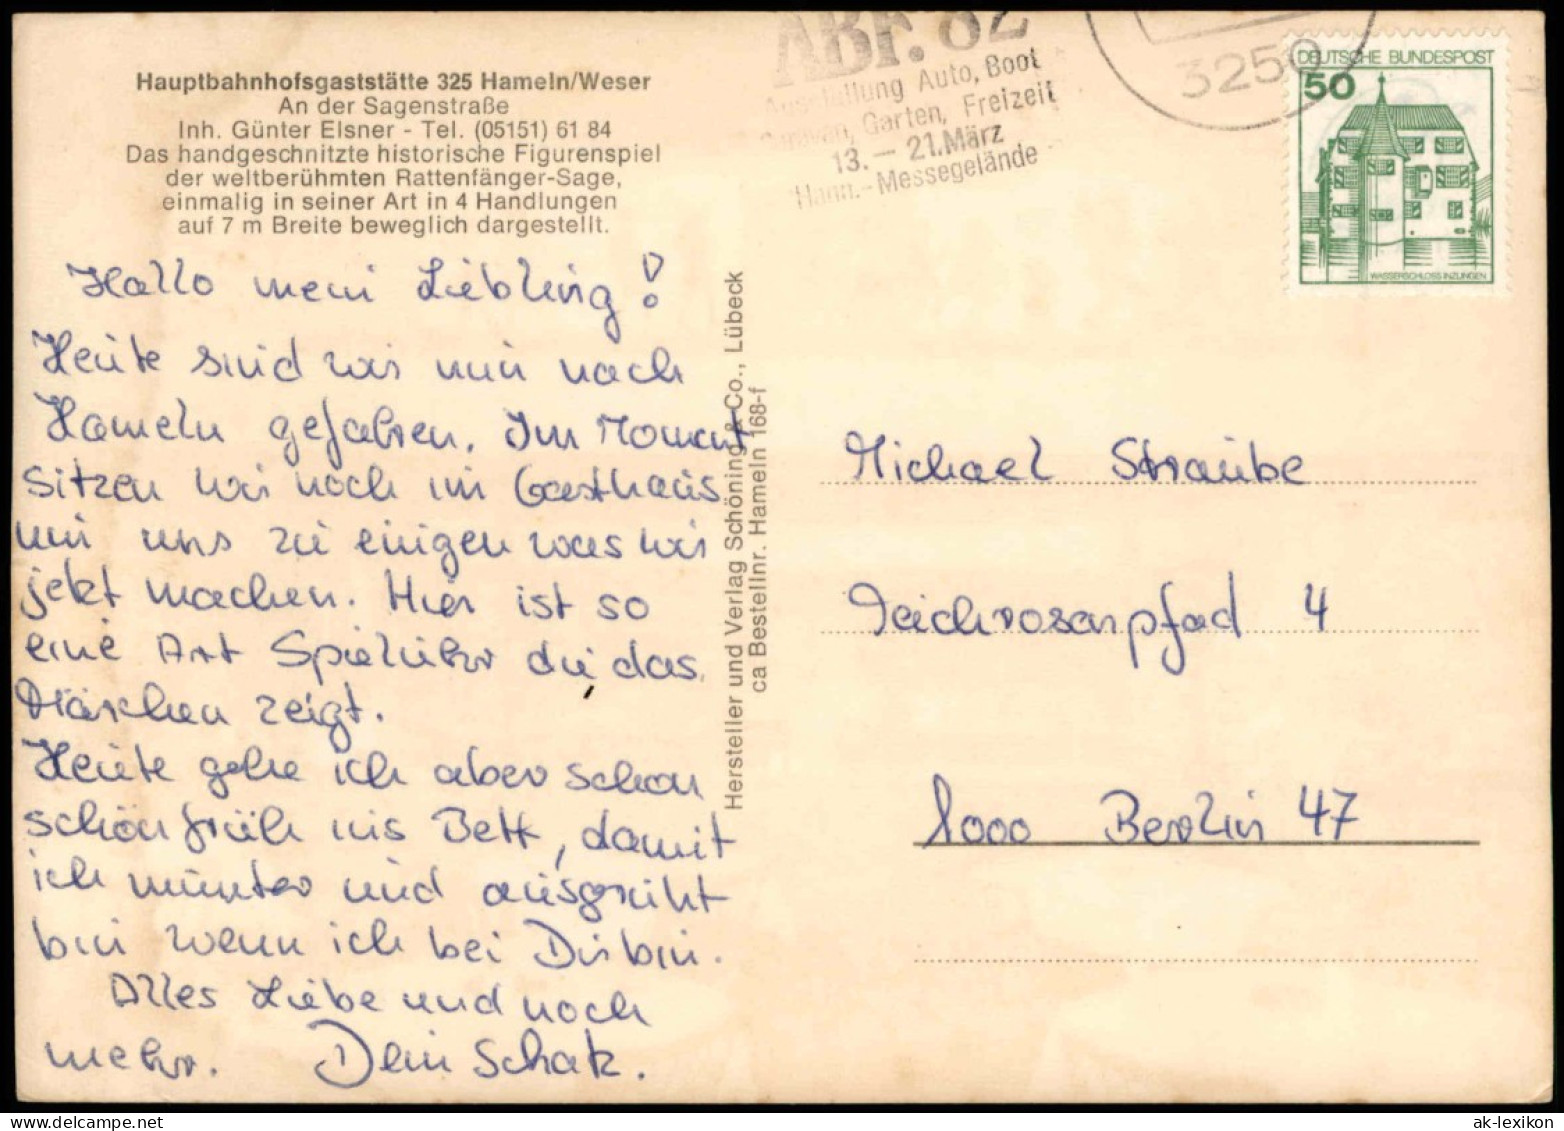 Hauptbahnhofsgaststätte 325 Hameln/Weser
An der Sagenstraße
Inh. Günter Elsner - Tel. (05151) 61 84
Das handgeschnitzte historische Figurenspiel
der weltberühmten Rattenfänger-Sage,
einmalig in seiner Art in 4 Handlungen
auf 7 m Breite beweglich dargestellt.
Hallo mein Liebling!
Heute sind wir nun nach
Hameln gefahren. Im Moment
sitzen wir noch im Gasthaus
um uns zu einigen was wir
jetzt machen. Hier ist so
eine Art Spieluhr die das
Märchen zeigt.
Heute gehe ich aber schon
schön früh ins Bett, damit
ich munter und ausgeruht
bin wenn ich bei Dir bin.
Alles Liebe und noch
mehr. Dein Schatz.
Hersteller und Verlag Schöning & Co., Lübeck
ca Bestellnr. Hameln 168-f
ABF. 82
Ausstellung Auto, Boot
Caravan, Garten, Freizeit
13. – 21. März
Hann.-Messegelände
3250
DEUTSCHE BUNDESPOST
50
WASSERSCHLOSS INZLINGEN
Michael Straube
Teichrosenpfad 4
1000 Berlin 47
ak-lexikon